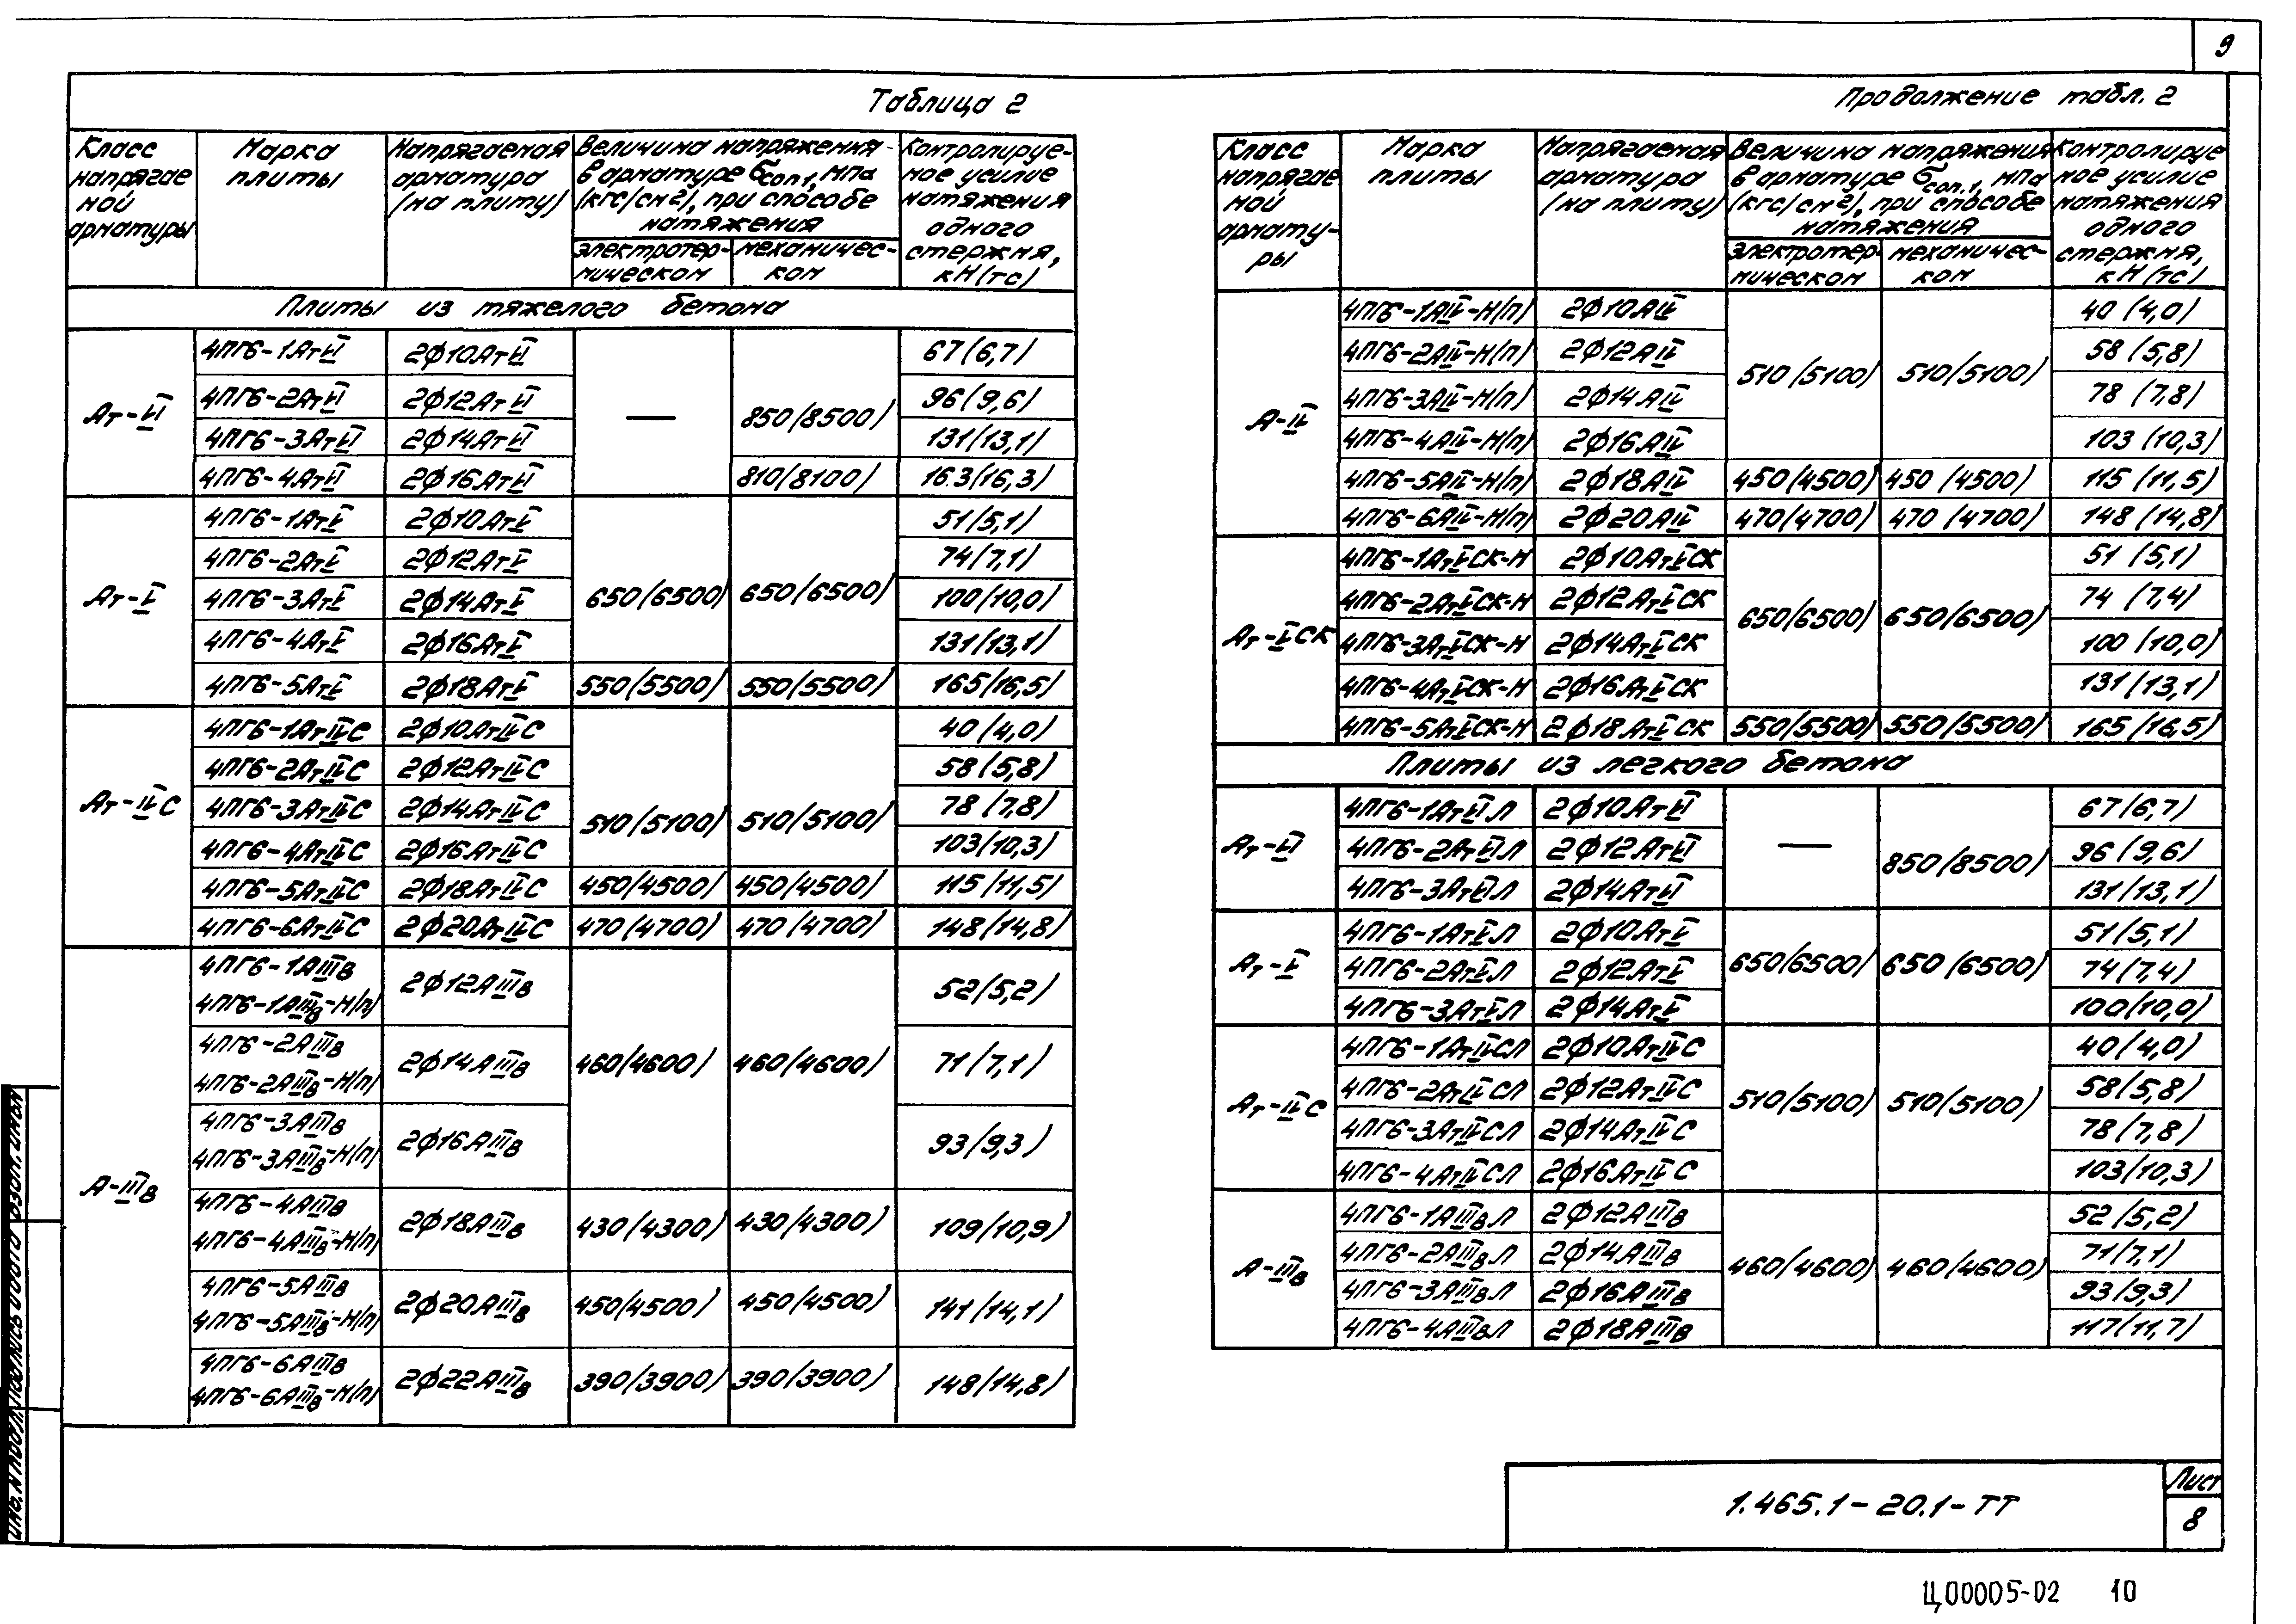 9
Таблица 2
Класс напрягае мой арматуры
Марка плиты
Напрягаемая арматура (на плиту)
Величина напряжения в арматуре σcon1, МПа (кгс/см²), при способе натяжения
электротер- мическом
механичес- ком
Контролируе- мое усилие натяжения одного стержня, кН(тс)
Плиты из тяжелого бетона
Ат-VI
4ПГ6-1АтVI 2ф10АтVI — 850(8500) 67(6,7)
4ПГ6-2АтVI 2ф12АтVI 96(9,6)
4ПГ6-3АтVI 2ф14АтVI 131(13,1)
4ПГ6-4АтVI 2ф16АтVI 810(8100) 16.3(16,3)
Ат-V
4ПГ6-1АтV 2ф10АтV 650(6500) 650(6500) 51(5,1)
4ПГ6-2АтV 2ф12АтV 74(7,1)
4ПГ6-3АтV 2ф14АтV 100(10,0)
4ПГ6-4АтV 2ф16АтV 131(13,1)
4ПГ6-5АтV 2ф18АтV 550(5500) 550(5500) 165(16,5)
Ат-IVС
4ПГ6-1АтIVС 2ф10АтIVС 510(5100) 510(5100) 40(4,0)
4ПГ6-2АтIVС 2ф12АтIVС 58(5,8)
4ПГ6-3АтIVС 2ф14АтIVС 78(7,8)
4ПГ6-4АтIVС 2ф16АтIVС 103(10,3)
4ПГ6-5АтIVС 2ф18АтIVС 450(4500) 450(4500) 115(11,5)
4ПГ6-6АтIVС 2ф20АтIVС 470(4700) 470(4700) 148(14,8)
А-IIIв
4ПГ6-1АIIIв
4ПГ6-1АIIIв-Н(п) 2ф12АIIIв 460(4600) 460(4600) 52(5,2)
4ПГ6-2АIIIв
4ПГ6-2АIIIв-Н(п) 2ф14АIIIв 71(7,1)
4ПГ6-3АIIIв
4ПГ6-3АIIIв-Н(п) 2ф16АIIIв 93(9,3)
4ПГ6-4АIIIв
4ПГ6-4АIIIв-Н(п) 2ф18АIIIв 430(4300) 430(4300) 109(10,9)
4ПГ6-5АIIIв
4ПГ6-5АIIIв-Н(п) 2ф20АIIIв 450(4500) 450(4500) 141(14,1)
4ПГ6-6АIIIв
4ПГ6-6АIIIв-Н(п) 2ф22АIIIв 390(3900) 390(3900) 148(14,8)
Продолжение табл. 2
Класс напрягае мой армату- ры
Марка плиты
Напрягаемая арматура (на плиту)
Величина напряжения в арматуре σcon.1, МПа (кгс/см²), при способе натяжения
электротер- мическом
механичес- ком
Контролируе мое усилие натяжения одного стержня, кН(тс)
А-IV
4ПГ6-1АIV-Н(п) 2ф10АIV 510(5100) 510(5100) 40(4,0)
4ПГ6-2АIV-Н(п) 2ф12АIV 58(5,8)
4ПГ6-3АIV-Н(п) 2ф14АIV 78(7,8)
4ПГ6-4АIV-Н(п) 2ф16АIV 103(10,3)
4ПГ6-5АIV-Н(п) 2ф18АIV 450(4500) 450(4500) 115(11,5)
4ПГ6-6АIV-Н(п) 2ф20АIV 470(4700) 470(4700) 148(14,8)
Ат-VСК
4ПГ6-1АтVСК-Н 2ф10АтVСК 650(6500) 650(6500) 51(5,1)
4ПГ6-2АтVСК-Н 2ф12АтVСК 74(7,4)
4ПГ6-3АтVСК-Н 2ф14АтVСК 100(10,0)
4ПГ6-4АтVСК-Н 2ф16АтVСК 131(13,1)
4ПГ6-5АтVСК-Н 2ф18АтVСК 550(5500) 550(5500) 165(16,5)
Плиты из легкого бетона
Ат-VI
4ПГ6-1АтVIЛ 2ф10АтVI — 850(8500) 67(6,7)
4ПГ6-2АтVIЛ 2ф12АтVI 96(9,6)
4ПГ6-3АтVIЛ 2ф14АтVI 131(13,1)
Ат-V
4ПГ6-1АтVЛ 2ф10АтV 650(6500) 650(6500) 51(5,1)
4ПГ6-2АтVЛ 2ф12АтV 74(7,4)
4ПГ6-3АтVЛ 2ф14АтV 100(10,0)
Ат-IVС
4ПГ6-1АтIVСЛ 2ф10АтIVС 510(5100) 510(5100) 40(4,0)
4ПГ6-2АтIVСЛ 2ф12АтIVС 58(5,8)
4ПГ6-3АтIVСЛ 2ф14АтIVС 78(7,8)
4ПГ6-4АтIVСЛ 2ф16АтIVС 103(10,3)
А-IIIв
4ПГ6-1АIIIвЛ 2ф12АIIIв 460(4600) 460(4600) 52(5,2)
4ПГ6-2АIIIвЛ 2ф14АIIIв 71(7,1)
4ПГ6-3АIIIвЛ 2ф16АIIIв 93(9,3)
4ПГ6-4АIIIвЛ 2ф18АIIIв 117(11,7)
Инв.N подл. Подпись и дата Взам.инв.N
1.465.1-20.1-ТТ
Лист
8
Ц00005-02 10